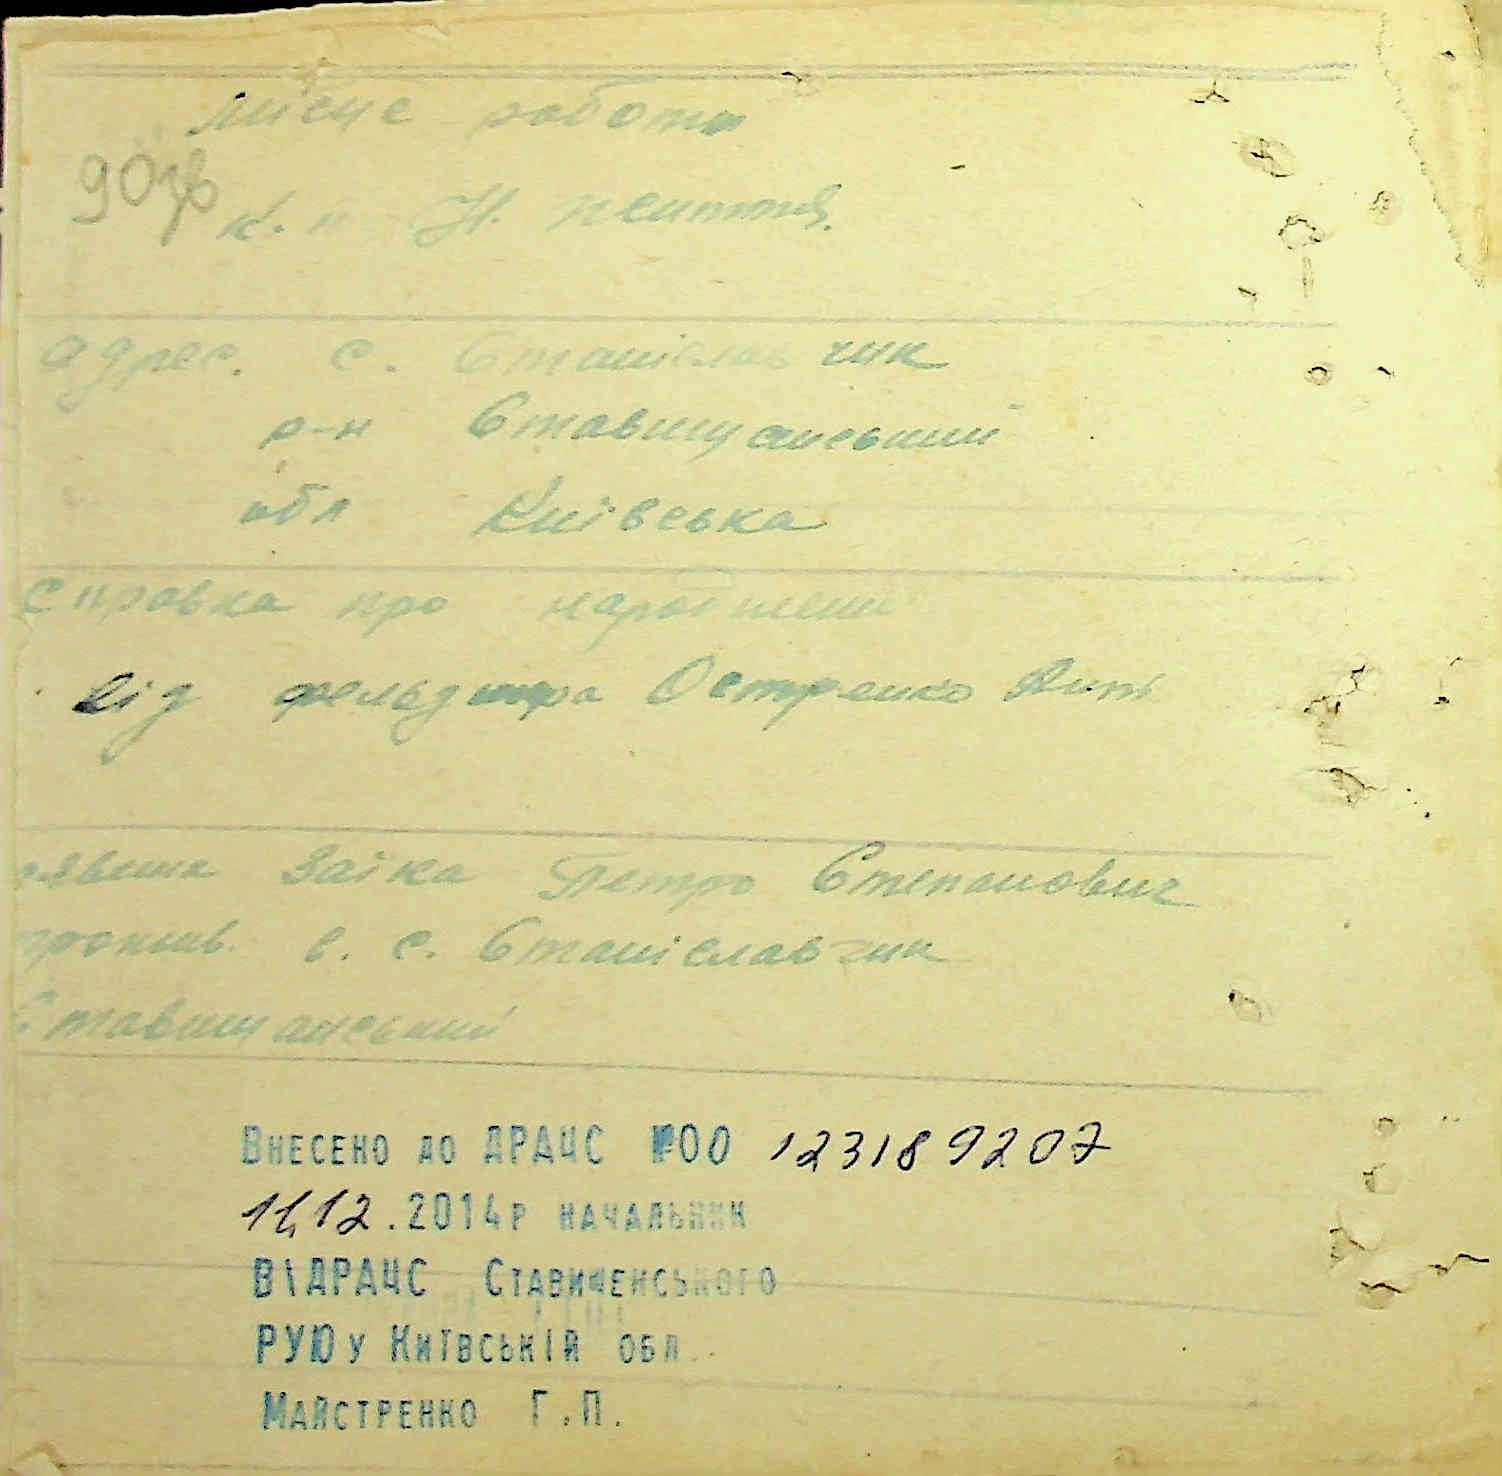 місце роботи
90зв
к. п Н. життя.
адрес. с. Станіславчик
р-н Ставищанський
обл Київська
справка про народження
від фельдшера Остренко
Заіка Петро Степанович
прожив. в. с. Станіславчик
Ставищанський
Внесено до ДРАЦС №00 123189207
11,12.2014р начальник
ВІДРАЦС Ставищенського
РУЮ у Київській обл.
Майстренко Г.П.